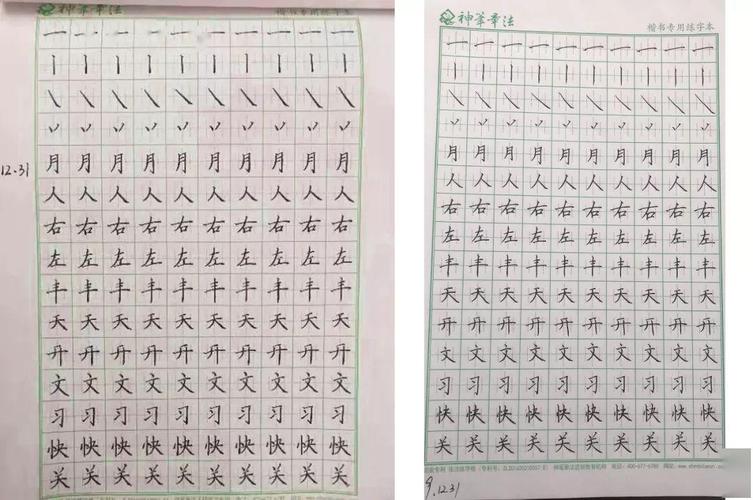 神筆章法 楷书专用练字本
一 一 一 一 一 一 一 一 一 一
丨 丨 丨 丨 丨 丨 丨 丨 丨 丨
㇏ ㇏ ㇏ ㇏ ㇏ ㇏ ㇏ ㇏ ㇏ ㇏
丷 丷 丷 丷 丷 丷 丷 丷 丷 丷
12.31 月 月 月 月 月 月 月 月 月 月
人 人 人 人 人 人 人 人 人 人
右 右 右 右 右 右 右 右 右 右
左 左 左 左 左 左 左 左 左 左
丰 丰 丰 丰 丰 丰 丰 丰 丰 丰
天 天 天 天 天 天 天 天 天 天
开 开 开 开 开 开 开 开 开 开
文 文 文 文 文 文 文 文 文 文
习 习 习 习 习 习 习 习 习 习
快 快 快 快 快 快 快 快 快 快
关 关 关 关 关 关 关 关 关 关
神筆章法 楷书专用练字本
一 一 一 一 一 一 一 一 一 一
丨 丨 丨 丨 丨 丨 丨 丨 丨 丨
㇏ ㇏ ㇏ ㇏ ㇏ ㇏ ㇏ ㇏ ㇏ ㇏
丷 丷 丷 丷 丷 丷 丷 丷 丷 丷
月 月 月 月 月 月 月 月 月 月
人 人 人 人 人 人 人 人 人 人
右 右 右 右 右 右 右 右 右 右
左 左 左 左 左 左 左 左 左 左
丰 丰 丰 丰 丰 丰 丰 丰 丰 丰
天 天 天 天 天 天 天 天 天 天
开 开 开 开 开 开 开 开 开 开
文 文 文 文 文 文 文 文 文 文
习 习 习 习 习 习 习 习 习 习
快 快 快 快 快 快 快 快 快 快
关 关 关 关 关 关 关 关 关 关
9.12.31